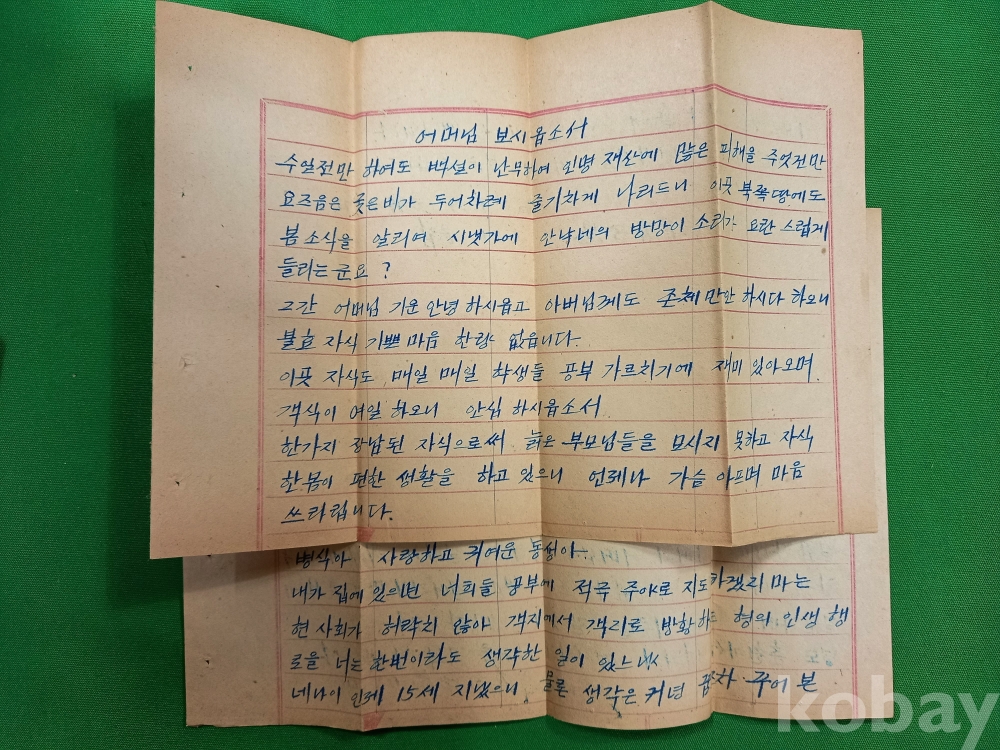 어머님 보시옵소서
수일전만 하여도 백설이 난무하여 인명 재산에 많은 피해을 주엇건만
요즈음은 궂은비가 두어차례 줄기차게 나리드니 이곳 북쪽땅에도
봄소식을 알리여 시냇가에 안낙네의 방망이 소리가 요란 스럽게
들리는군요 ?
그간 어머님 기운 안녕 하시옵고 아버님게도 존체만안 하시다 하오니
불효 자식 기쁘 마음 한량 없읍니다.
이곳 자식도 매일 매일 학생들 공부 가르치기에 재미 있아오며
객식이 여일 하오니 안심 하시옵소서
한가지 장남된 자식으로써 늙은 부모님들을 모시지 못하고 자식
한몸이 편한 생활을 하고 있으니 언제나 가슴 아프며 마음
쓰라립니다.
병식아 사랑하고 귀여운 동생아.
내가 집에 있으면 너희들 공부에 적극 주야로 지도하겠리마는
현 사회가 허락치 않아 객지에서 객리로 방황하는 형의 인생 행
로을 너는 한번이라도 생각한 일이 있느냐
네나이 인제 15세 지냈으니 물론 생각은 커녕 꿈차 꾸어 본
kobay